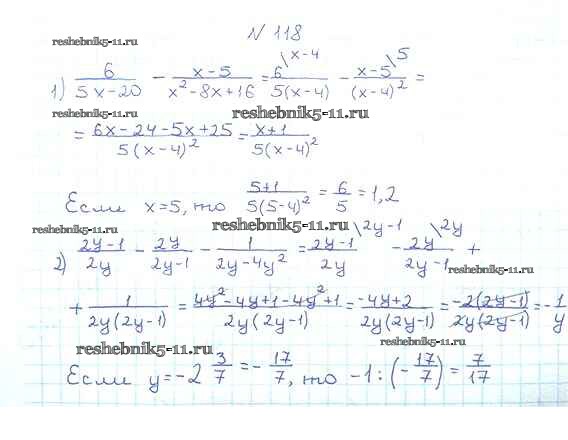 № 118
reshebnik5-11.ru
1) 6/(5x-20) - (x-5)/(x²-8x+16) = 6\x-4/(5(x-4)) - (x-5)\5/((x-4)²) =
reshebnik5-11.ru reshebnik5-11.ru
= (6x-24-5x+25)/(5(x-4)²) = (x+1)/(5(x-4)²)
Если x=5, то (5+1)/(5(5-4)²) = 6/5 = 1,2
reshebnik5-11.ru reshebnik5-11.ru
2) (2y-1)/(2y) - 2y/(2y-1) - 1/(2y-4y²) = (2y-1)\2y-1/(2y) - 2y\2y/(2y-1) +
reshebnik5-11.ru
+ 1/(2y(2y-1)) = (4y²-4y+1-4y²+1)/(2y(2y-1)) = (-4y+2)/(2y(2y-1)) = (-2(2y-1))/(2y(2y-1)) = -1/y
reshebnik5-11.ru reshebnik5-11.ru
Если y=-2 3/7 = -17/7, то -1:(-17/7) = 7/17